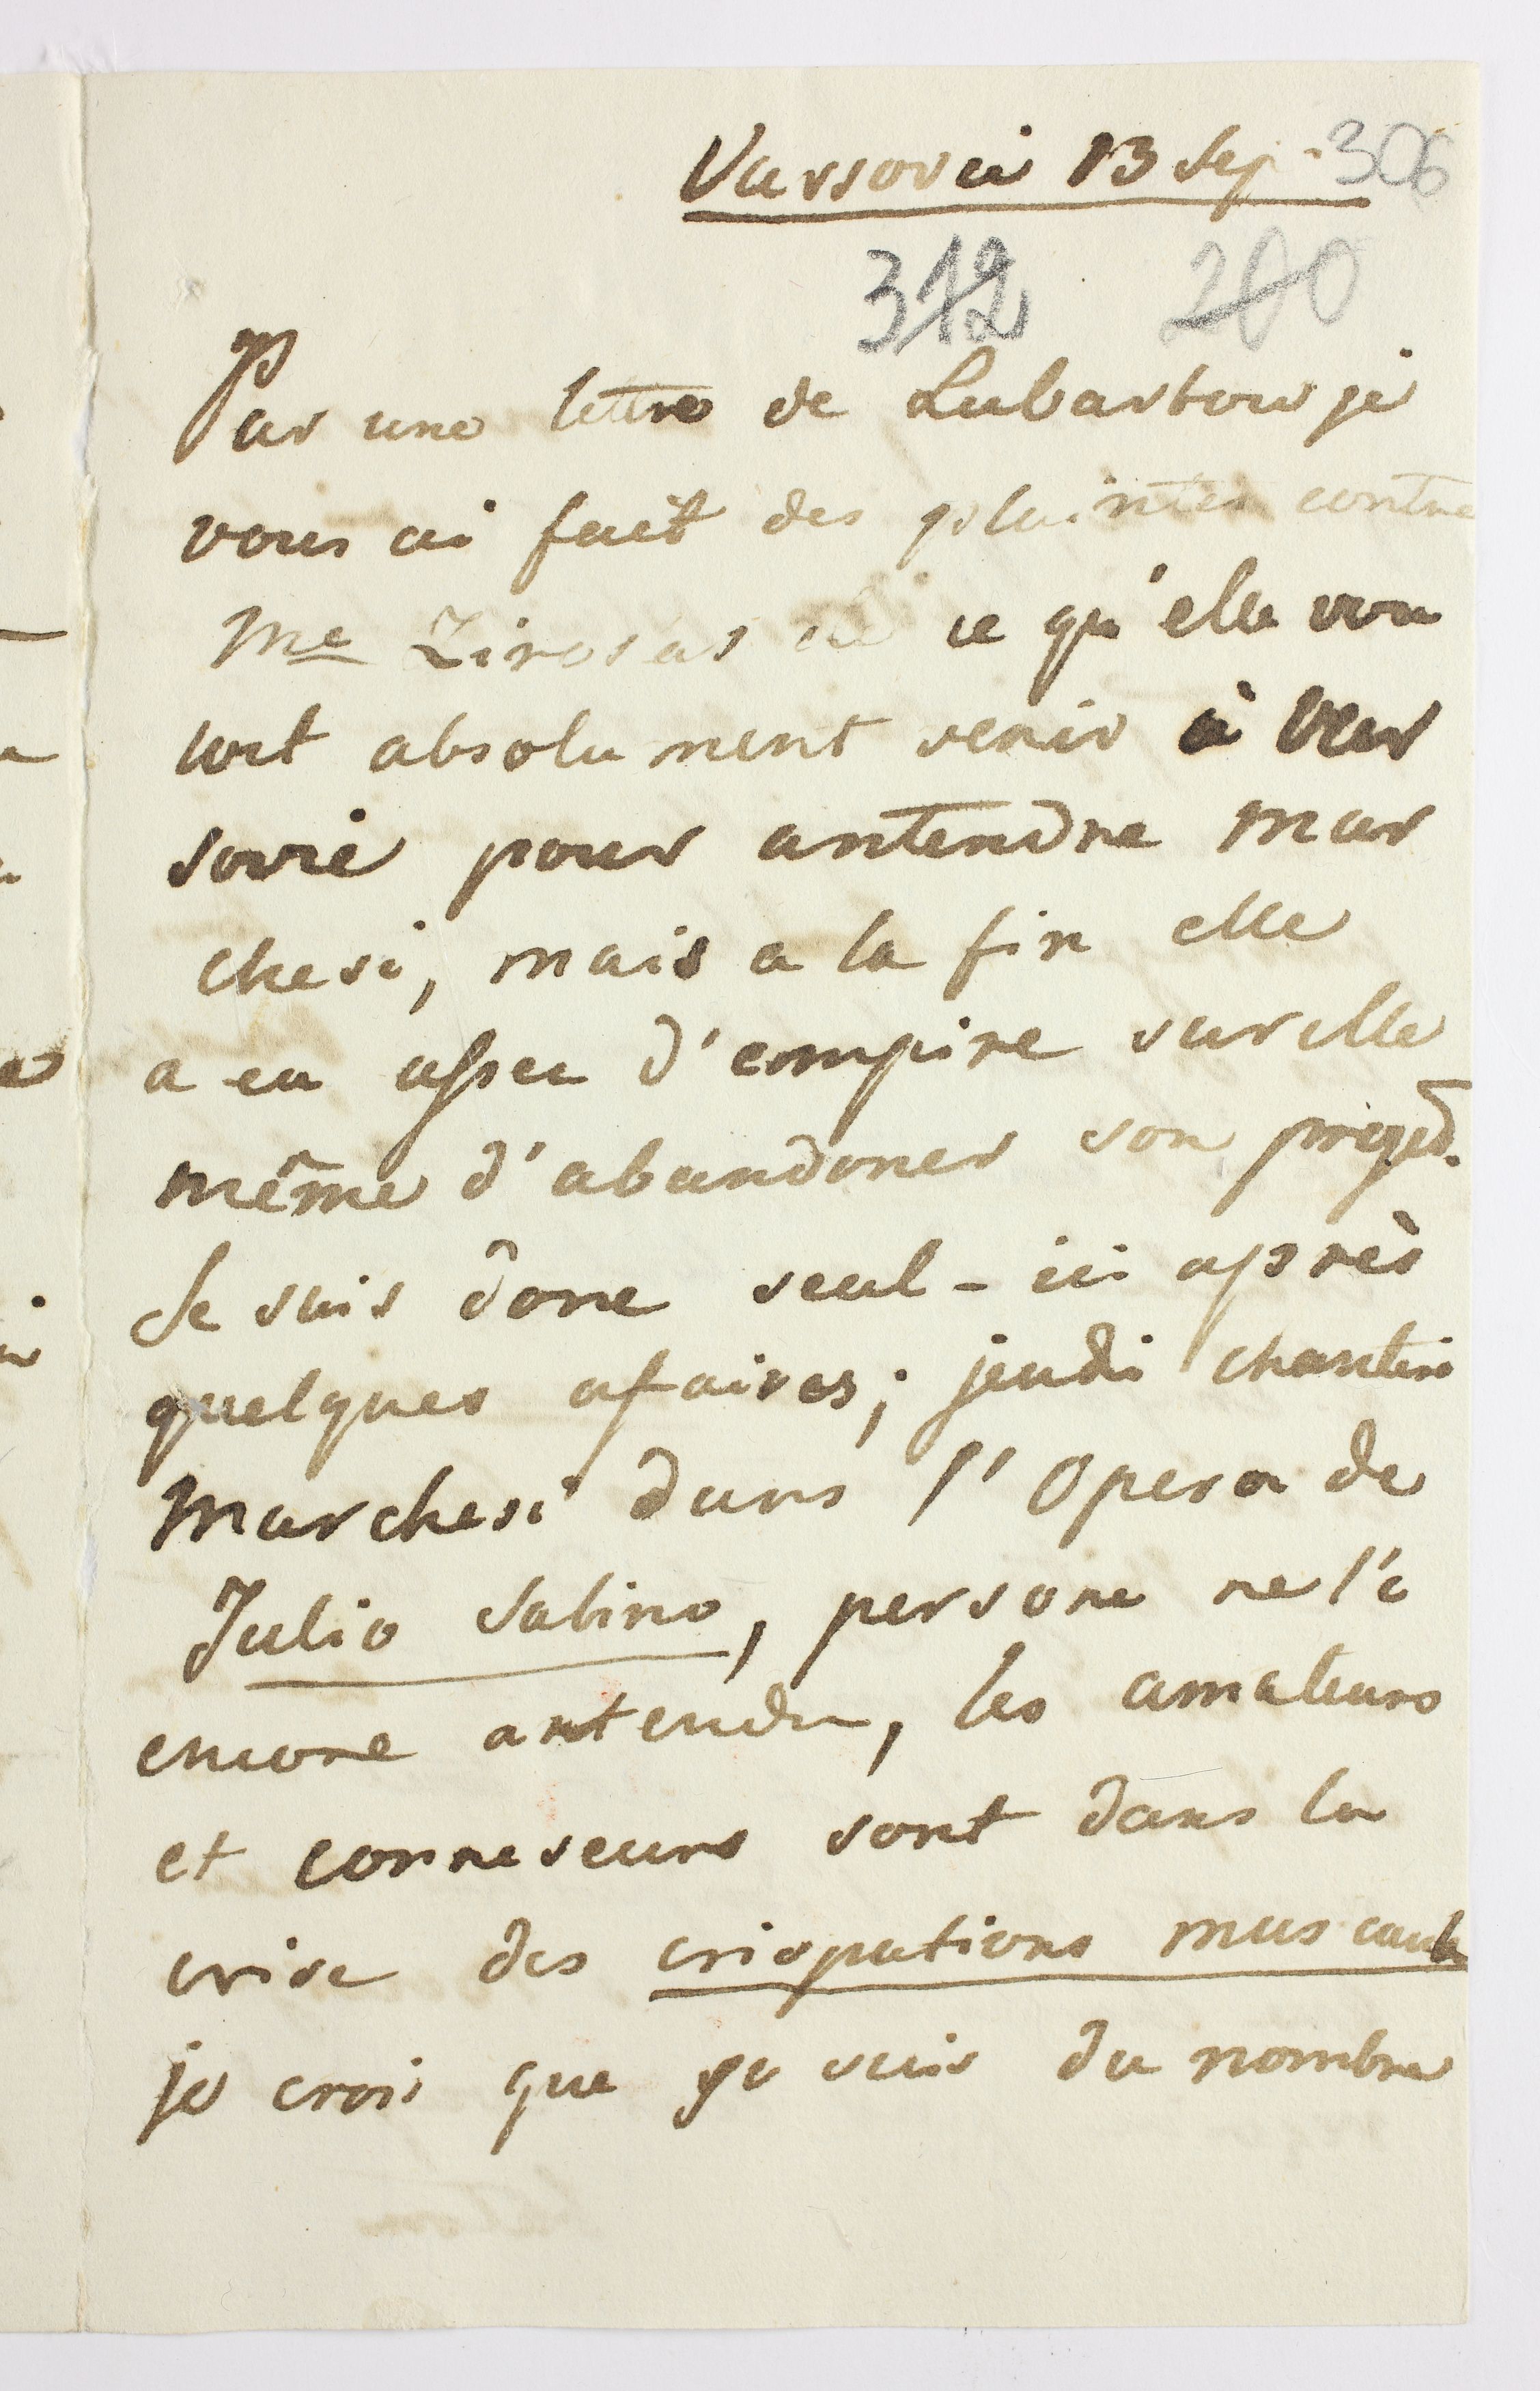 Varsovie 13 Sep. 306
312 200
Par une lettre de Lubartow je
vous ai fait des plaintes contre
Me de ce qu'elle vou
loit absolument venir à Var
sovie pour antendre Mar
chesi, mais a la fin elle
a eu assez d'empire sur elle
même d'abandoner son
Je suis donc seul - ici après
quelques afaires; jeudi chantera
Marchesi dans l'Opera de
Julio Sabino, persone ne l'a
encore antendu, les amateurs
et conneseurs sont dans la
crise des crispations
je crois que je suis du nombre